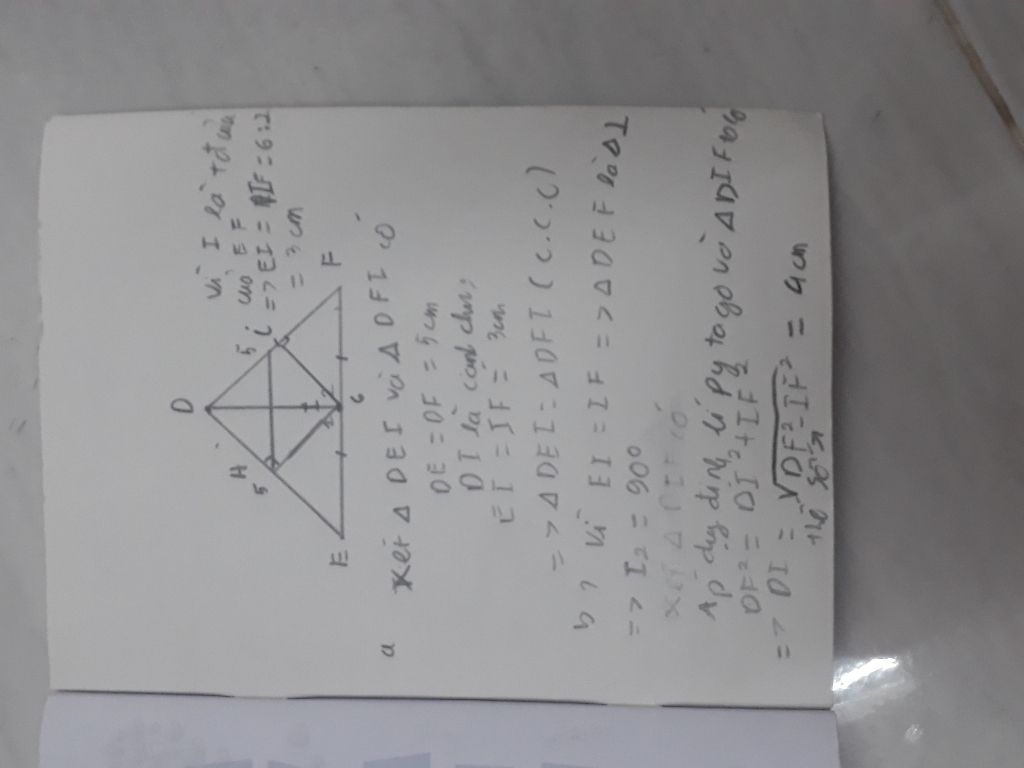 Vì I là tđ của
D
5 i của EF
H => EI = IF = 6:2
5 = 3 cm
E 6 F
a Xét Δ DEI và Δ DFI có
DE = DF = 5 cm
DI là cạnh chung
EI = IF = 3cm
=> Δ DEI = Δ DFI (c.c.c)
b, Vì EI = IF => Δ DEF là Δ ⊥
=> I2 = 90°
Xét Δ DIF có
Áp dụng định lí Py ta go vào Δ DIF
DF² = DI² + IF²
=> DI = √DF² - IF² = 4 cm